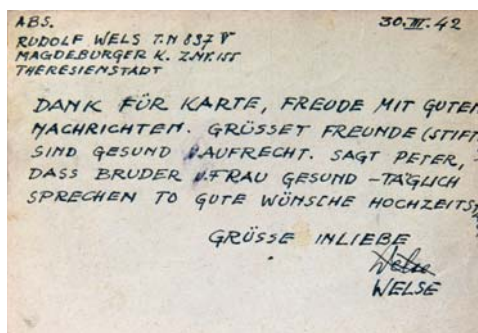 ABS. 30.III.42
RUDOLF WELS T.N 837 V
MAGDEBURGER K. Z.NR.155
THERESIENSTADT
DANK FÜR KARTE, FREUDE MIT GUTEN
NACHRICHTEN. GRÜSSET FREUNDE (STIFT
SIND GESUND U. AUFRECHT. SAGT PETER,
DASS BRUDER U. FRAU GESUND – TÄGLICH
SPRECHEN TO GUTE WÜNSCHE HOCHZEITS
GRÜSSE IN LIEBE
WELSE